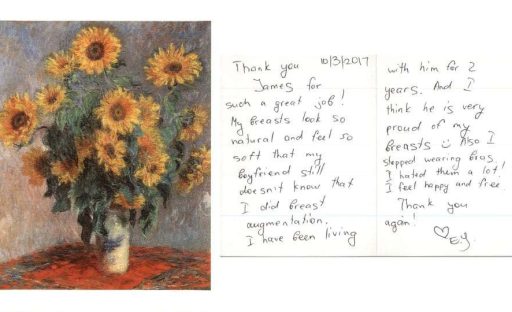 Thank you 10/3/2017
James for
such a great job!
My breasts look so
natural and feel so
soft that my
boyfriend still
doesn't know that
I did breast
augmentation.
I have been living
with him for 2
years. And I
think he is very
proud of my
breasts Also I
stopped wearing bras.
I hated them a lot!
I feel happy and free.
Thank you
again!
E.Y.